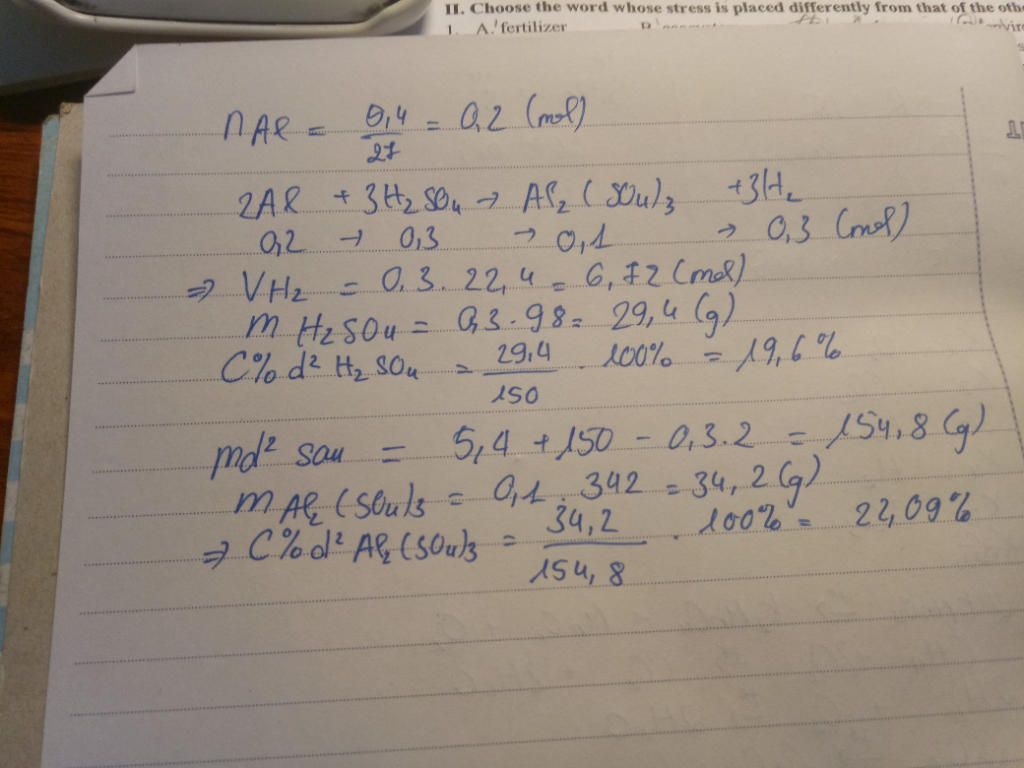 II. Choose the word whose stress is placed differently from that of the othe
1. A. 'fertilizer B.
nAl = 0,4/27 = 0,2 (mol)
2Al + 3H2SO4 → Al2(SO4)3 + 3H2
0,2 → 0,3 → 0,1 → 0,3 (mol)
⇒ VH2 = 0,3 . 22,4 = 6,72 (mol)
m H2SO4 = 0,3 . 98 = 29,4 (g)
C% d² H2SO4 = 29,4/150 . 100% = 19,6%
md² sau = 5,4 + 150 - 0,3.2 = 154,8 (g)
m Al2(SO4)3 = 0,1 . 342 = 34,2 (g)
⇒ C% d² Al2(SO4)3 = 34,2/154,8 . 100% = 22,09%